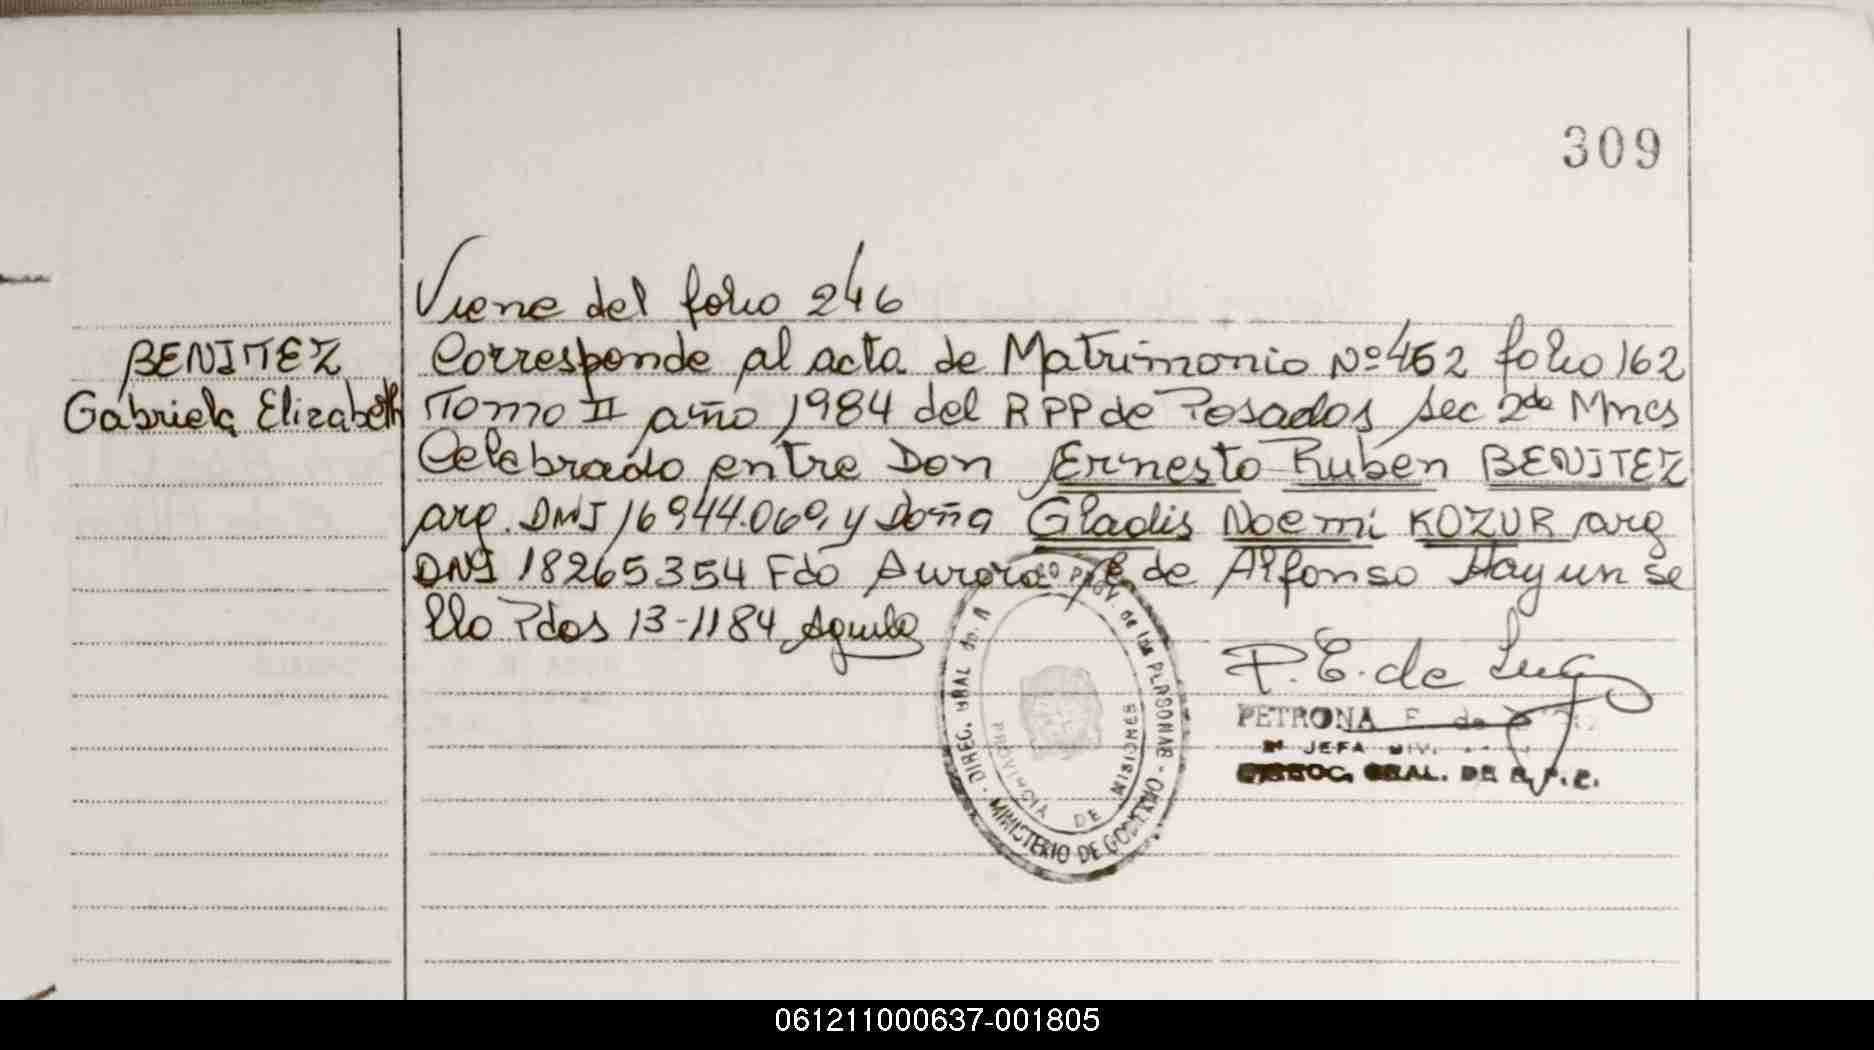 309
Viene del folio 246
BENITEZ
Gabriela Elizabeth
Corresponde al acta de Matrimonio Nº 452 folio 162
Tomo II año 1984 del RPP de Posadas sec 2da Mnes
Celebrado entre Don Ernesto Ruben BENITEZ
arg. DNI 16944.060, y Doña Gladis Noemi KOZUR arg
DNI 18265354 Fdo Aurora E de Alfonso Hay un se
llo Pdas 13-1184
P. E. de
PETRONA E. de
JEFA DIV.
GRAL. DE R. P. E.
DIREC. GRAL PROV. de las PERSONAS
MINISTERIO DE GOBIERNO
PROVINCIA DE MISIONES
061211000637-001805